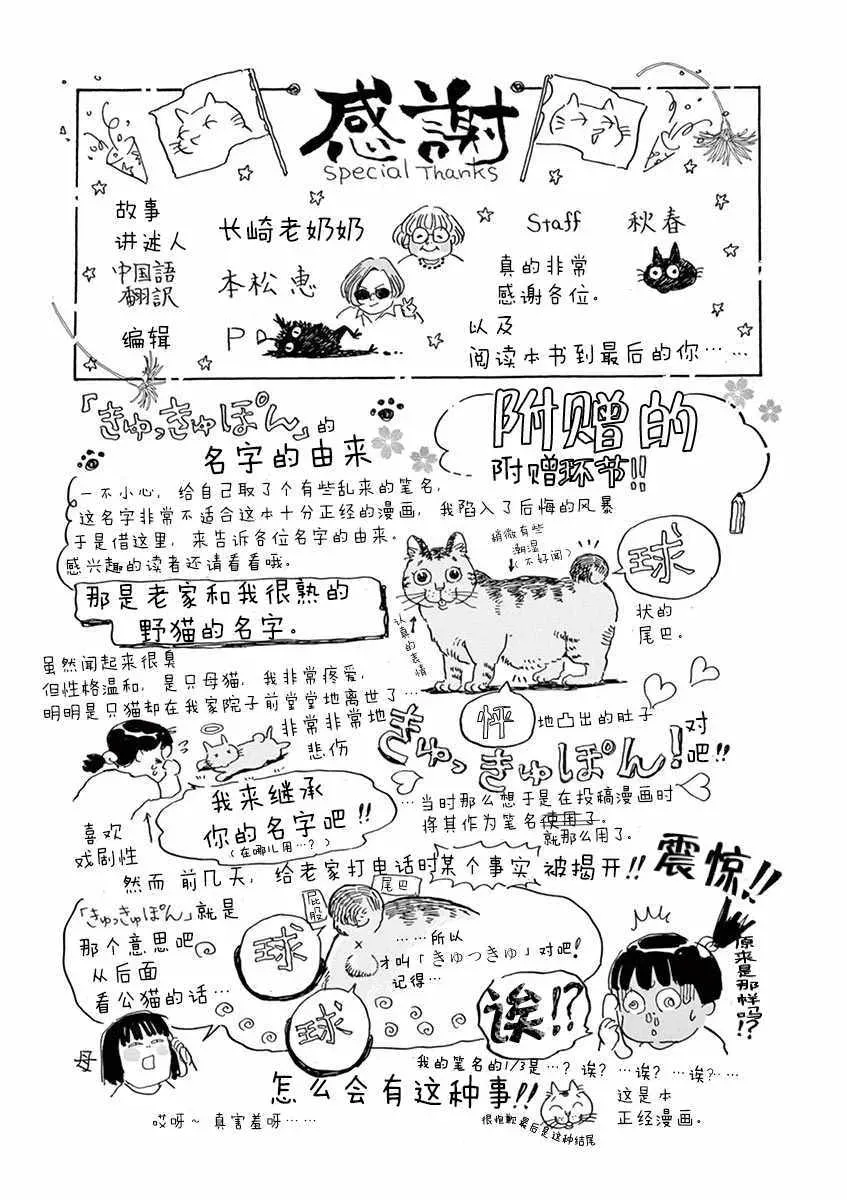 感謝
Special Thanks
故事
讲述人
长崎老奶奶
中国語
翻訳
本松惠
编辑
P
Staff
秋春
真的非常
感谢各位。
以及
阅读本书到最后的你……
「きゅっきゅぽん」的
名字的由来
附赠的
附赠环节!!
一不小心，给自己取了个有些乱来的笔名，
这名字非常不适合这本十分正经的漫画，我陷入了后悔的风暴
于是借这里，来告诉各位名字的由来。
感兴趣的读者还请看看哦。
那是老家和我很熟的
野猫的名字。
稍微有些
潮湿
(不好闻)
球
状的
尾巴。
认真的表情
虽然闻起来很臭
但性格温和，是只母猫，我非常疼爱，
明明是只猫却在我家院子前堂堂地离世了…
非常非常地
悲伤
怦
地凸出的肚子
きゅっきゅぽん!
对
吧!!
我来继承
你的名字吧!!
(在哪儿用…?)
喜欢
戏剧性
…当时那么想于是在投稿漫画时
将其作为笔名使用了。
就那么用了。
然而 前几天，给老家打电话时某个事实 被揭开!!
震惊!!
「きゅっきゅぽん」就是
那个意思吧
从后面
看公猫的话…
屁股
尾巴
球
球
……所以
才叫「きゅつきゅ」对吧!
记得…
诶!?
原来是那样吗!?
母
我的笔名的1/3是…? 诶? …诶? …诶?…
怎么会有这种事!!
这是本
正经漫画。
哎呀~ 真害羞呀……
很抱歉最后是这种结尾